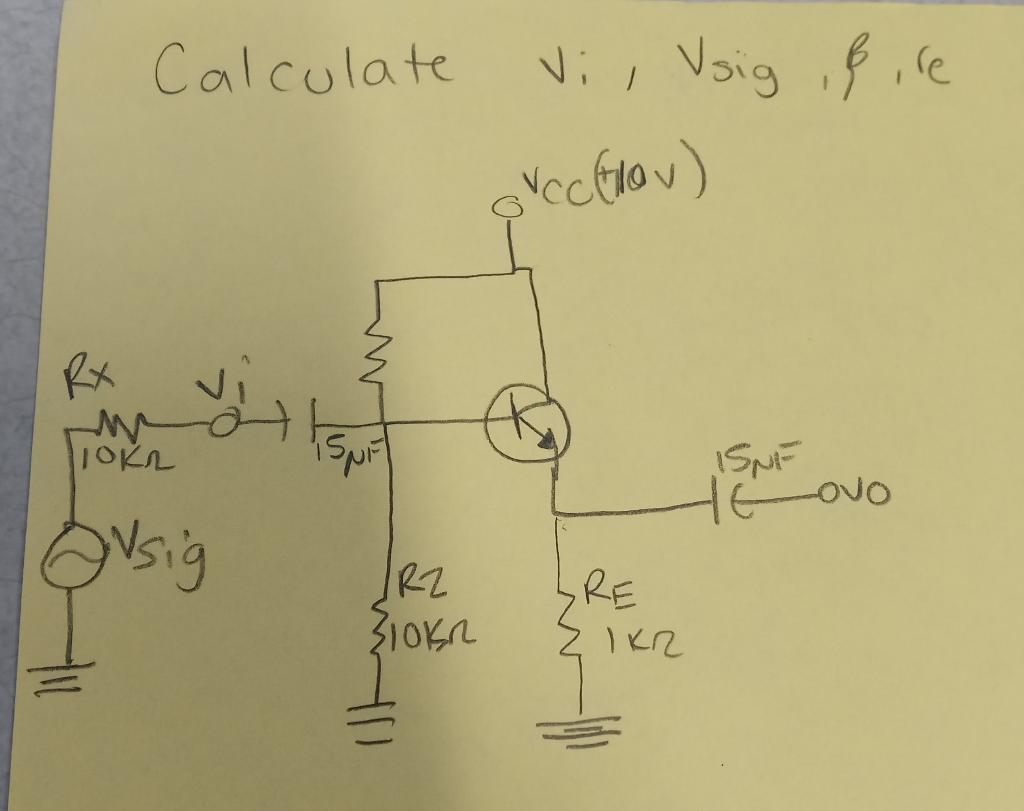 Calculate Vi, Vsig, β, re
VCC(+10V)
RX
Vi
10KΩ
15μF
Vsig
15μF
OVO
R2
10KΩ
RE
1KΩ